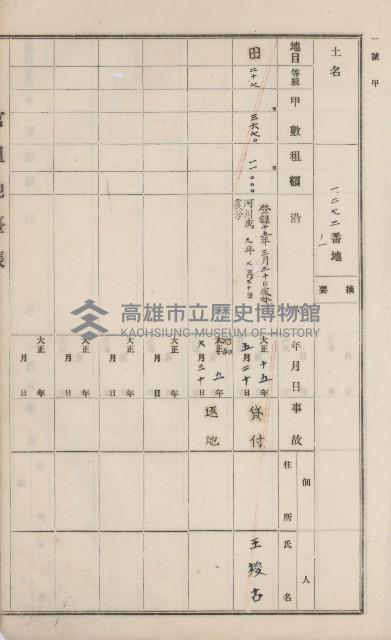 一號甲
土名
一、二七二番地
摘要
地目
等級
甲數
租額
沿
年月日
事故
佃人
住所
氏名
田
二十七
三六七〇
一一〇〇〇
登錄十五年三月三十日處分
河川成九年
大正十五年五月二十日
貸付
王
昭和五年六月三十日
返地
大正年月日
大正年月日
大正年月日
大正年月日
官租地臺帳
高雄市立歷史博物館
KAOHSIUNG MUSEUM OF HISTORY